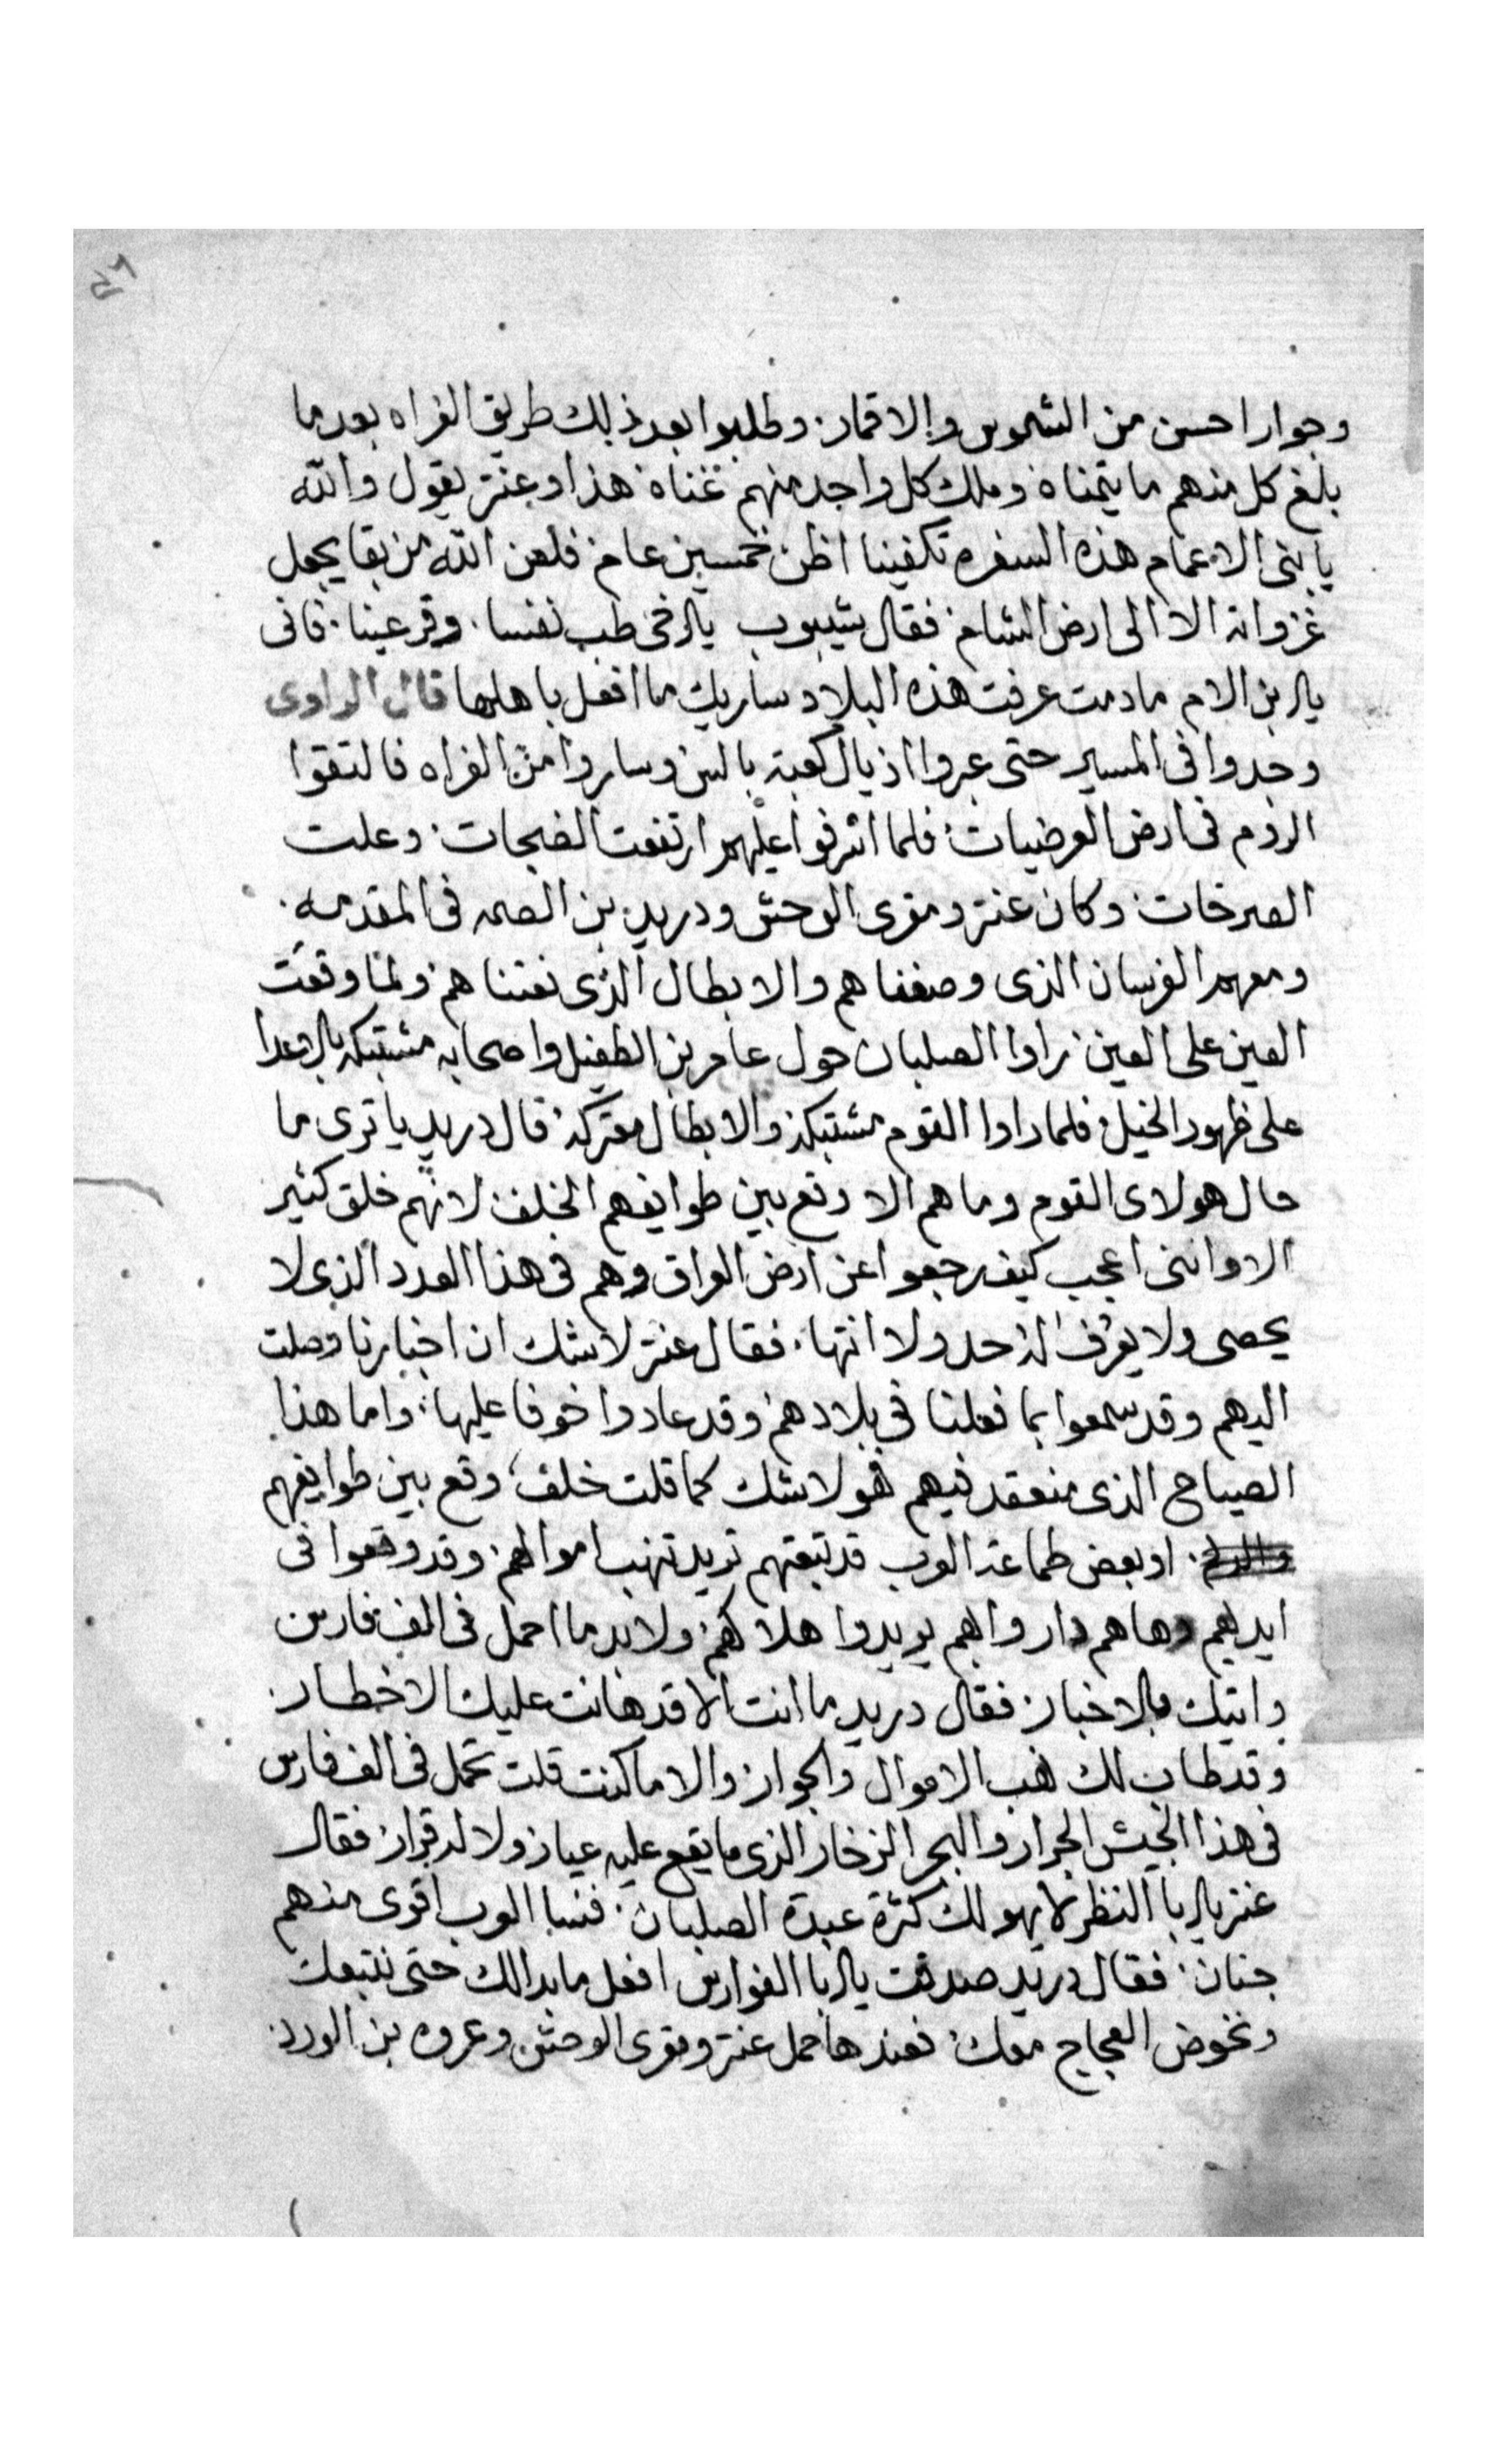 وجوار احسن من الشموس والاقمار. وطلبوا بعد ذلك طريق الفراه بعد ما
بلغ كل منهم ما يتمناه وملك كل واحد منهم غناه هذا وعنتر يقول والله
يا بنى الاعمام هذه السفره تكفينا اظن خمسين عام فلعن الله من بقا يجعل
غزواته الا الى ارض الشام فقال شيبوب يالاخى طب نفسا. وقر عينا. فانى
يالابن الام مادمت عرفت هذه البلاد ساريك ما افعل باهلها قال الراوى
وجدوا فى المسير حتى عبروا اذيال كعبة بالس وساروا من الفراه فالتقوا
الروم فى ارض العرضيات فلما اشرفوا عليهم ارتفعت الضجات. وعلت
الصرخات وكان عنتر ومقرى الوحش ودريد بن الصمه فى المقدمه.
ومعهم الفرسان الذى وصفناهم والابطال الذى نعتناهم ولما وقعت
العين على العين راوا الصلبان حول عامر بن الطفيل واصحابه مشتبكه بالاعدا
على ظهور الخيل فلما راوا القوم مشتبكه والابطال معتركه قال دريد يا ترى ما
حال هولاى القوم وما هم الا وقع بين طوايفهم الخلف لانهم خلق كثير
الا واننى اعجب كيف رجعوا عن ارض العراق وهم فى هذا العدد الذى لا
يحصى ولا يعرف له حد ولا انتها. فقال عنتر لاشك ان اخبارنا وصلت
اليهم وقد سمعوا بما فعلنا فى بلادهم وقد عادوا خوفا عليها. واما هذا
الصياح الذى منعقد فيهم فهو لاشك كما قلت خلف وقع بين طوايفهم
او بعض طماعة العرب قد تبعتهم تريد تنهب اموالهم وقد وقعوا فى
ايديهم وهاهم داروا بهم يريدوا هلاكهم ولابد ما احمل فى الف فارس
واتيك بالاخبار. فقال دريد ما انت الا قد هانت عليك الاخطار.
وقد طاب لك نهب الاموال والجوار والا ما كنت قلت تحمل فى الف فارس
فى هذا الجيش الجرار والبحر الزخار الذى ما يقع عليه عيار ولا له قرار فقال
عنتر يالابا النظر لا يهولك كثرة عبدة الصلبان. فنسا العرب اقوى منهم
جنان. فقال دريد صدقت يالابا الفوارس افعل ما بدالك حتى نتبعك
ونخوض العجاج معك فعندها حمل عنتر ومقرى الوحش وعروه بن الورد.